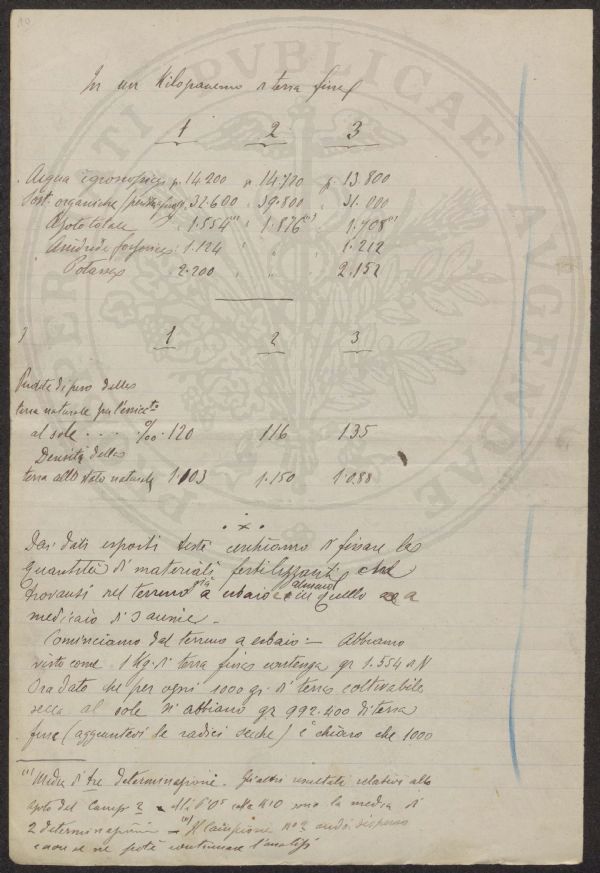 In un Kilogrammo di terra fine
1 2 3
Acqua igroscopica gr. 14.200 gr. 14.720 gr. 13.800
Sost. organiche 32.600 39.800 31.000
Azoto totale 1.554(1) 1.876(1) 1.708(1)
Anidride fosforica 1.124 " " 1.212
Potassa 2.200 " " 2.152
1 2 3
Perdite di peso della
terra naturale per l'essicc.to
al sole . . . . %00 120 116 135
Densità della
terra allo stato naturale 1.103 1.150 1.088
Dai dati esposti testè cerchiamo di fissare la
quantità di materiali fertilizzanti che
trovansi nel terreno già a erbaio e in quello a
medicaio di 3 annie.
Cominciamo dal terreno a erbaio: — Abbiamo
visto come 1 Kg. di terra fine contenga gr 1.554 di N
Ora dato che per ogni 1000 gr. di terra coltivabile
secca al sole si abbiano gr 992.400 di terra
fine (aggiuntevi le radici secche) è chiaro che 1000
(1) Media di tre determinazione. Gli altri resultati relativi allo
azoto del Camp. 2 — alla P2O5 e alla K2O sono la media di
2 determinazioni — Il campione n° 2 andò disperso
e non se ne potè continuare l'analisi